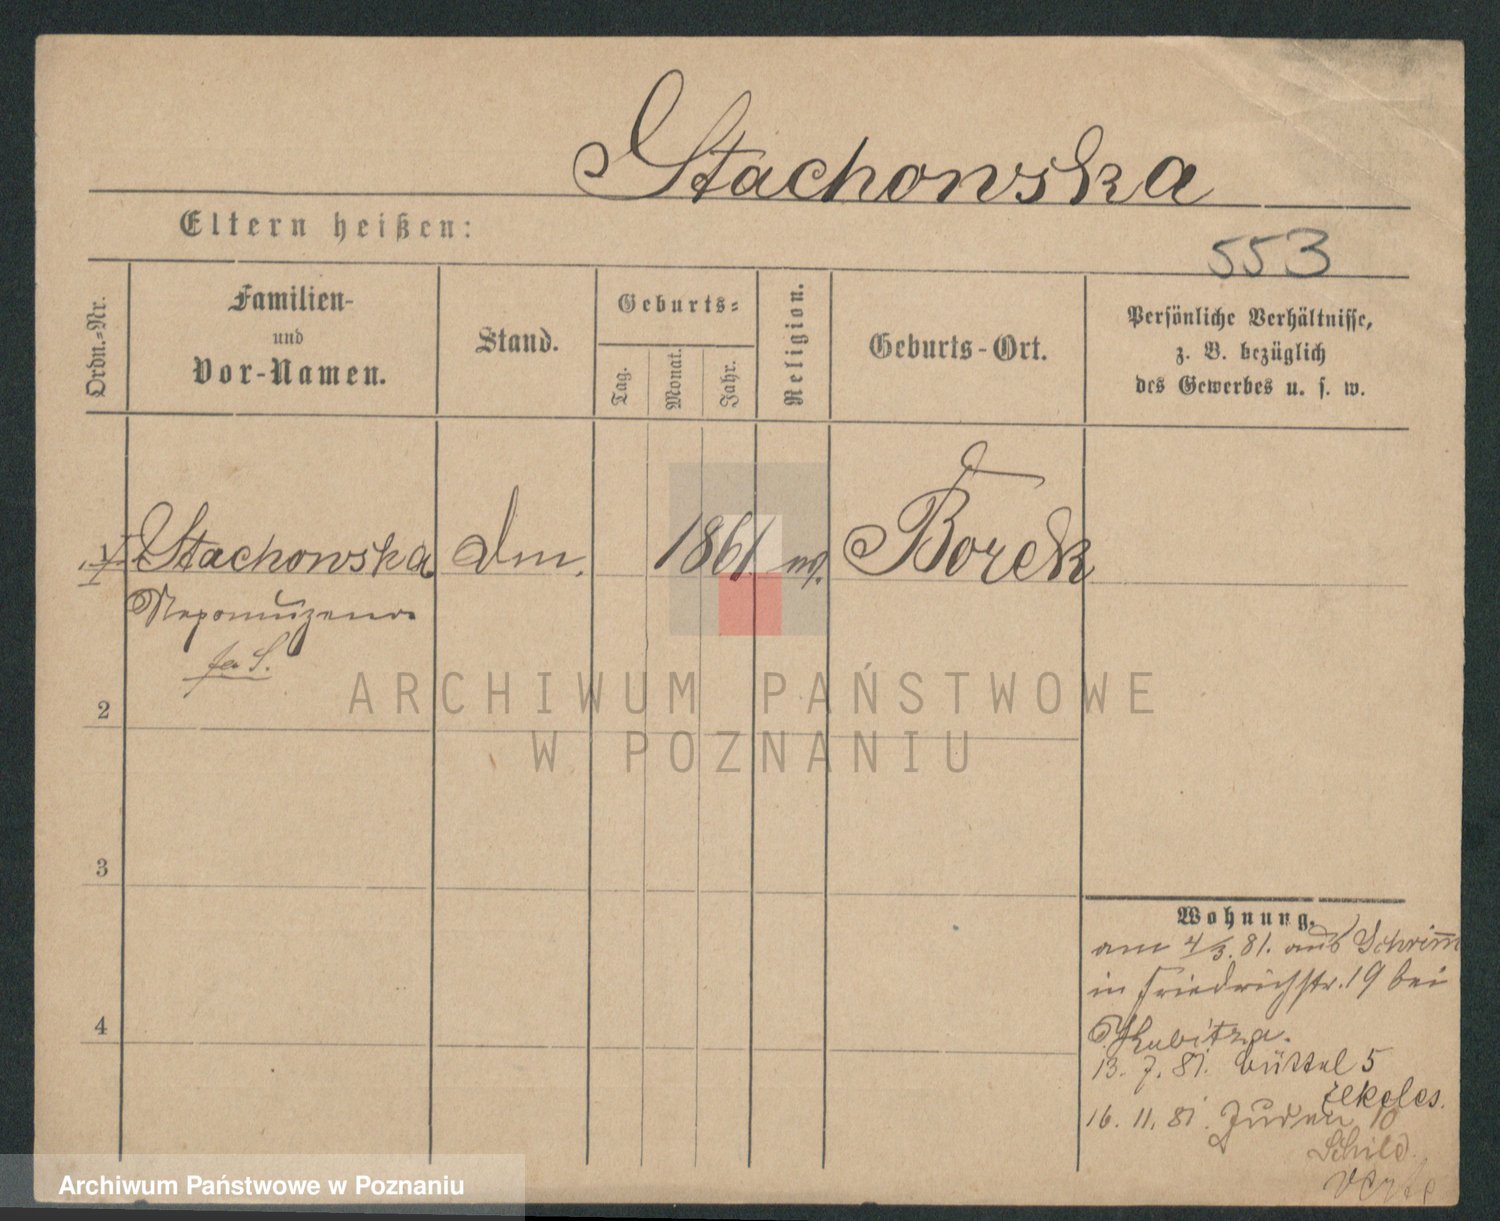 Stachowska
Eltern heißen:
553
Ordn.-Nr.
Familien-
und
Vor-Namen.
Stand.
Geburts-
Tag.
Monat.
Jahr.
Religion.
Geburts-Ort.
Persönliche Verhältnisse,
z. B. bezüglich
des Gewerbes u. s. w.
1 Stachowska 1861 Borek
Nepomuzena
2
3
4
Wohnung.
am 4/3. 81. aus Schrimm
in Friedrichstr. 19 bei
Kubitza.
13. 7. 81. Büttel 5
Ekeles.
16. 11. 81. Juden 10
Schild
ARCHIWUM PAŃSTWOWE
W POZNANIU
Archiwum Państwowe w Poznaniu